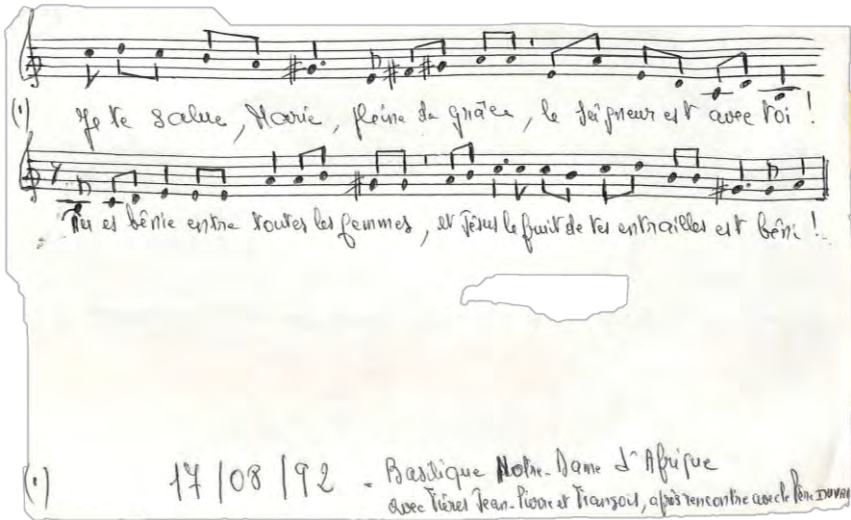 (1) Je te salue, Marie, pleine de grâce, le Seigneur est avec toi !
Tu es bénie entre toutes les femmes, et Jésus le fruit de tes entrailles est béni !
(1) 17/08/92 - Basilique Notre-Dame d'Afrique
avec Frères Jean-Pierre et François, après rencontre avec le Père DUVAL